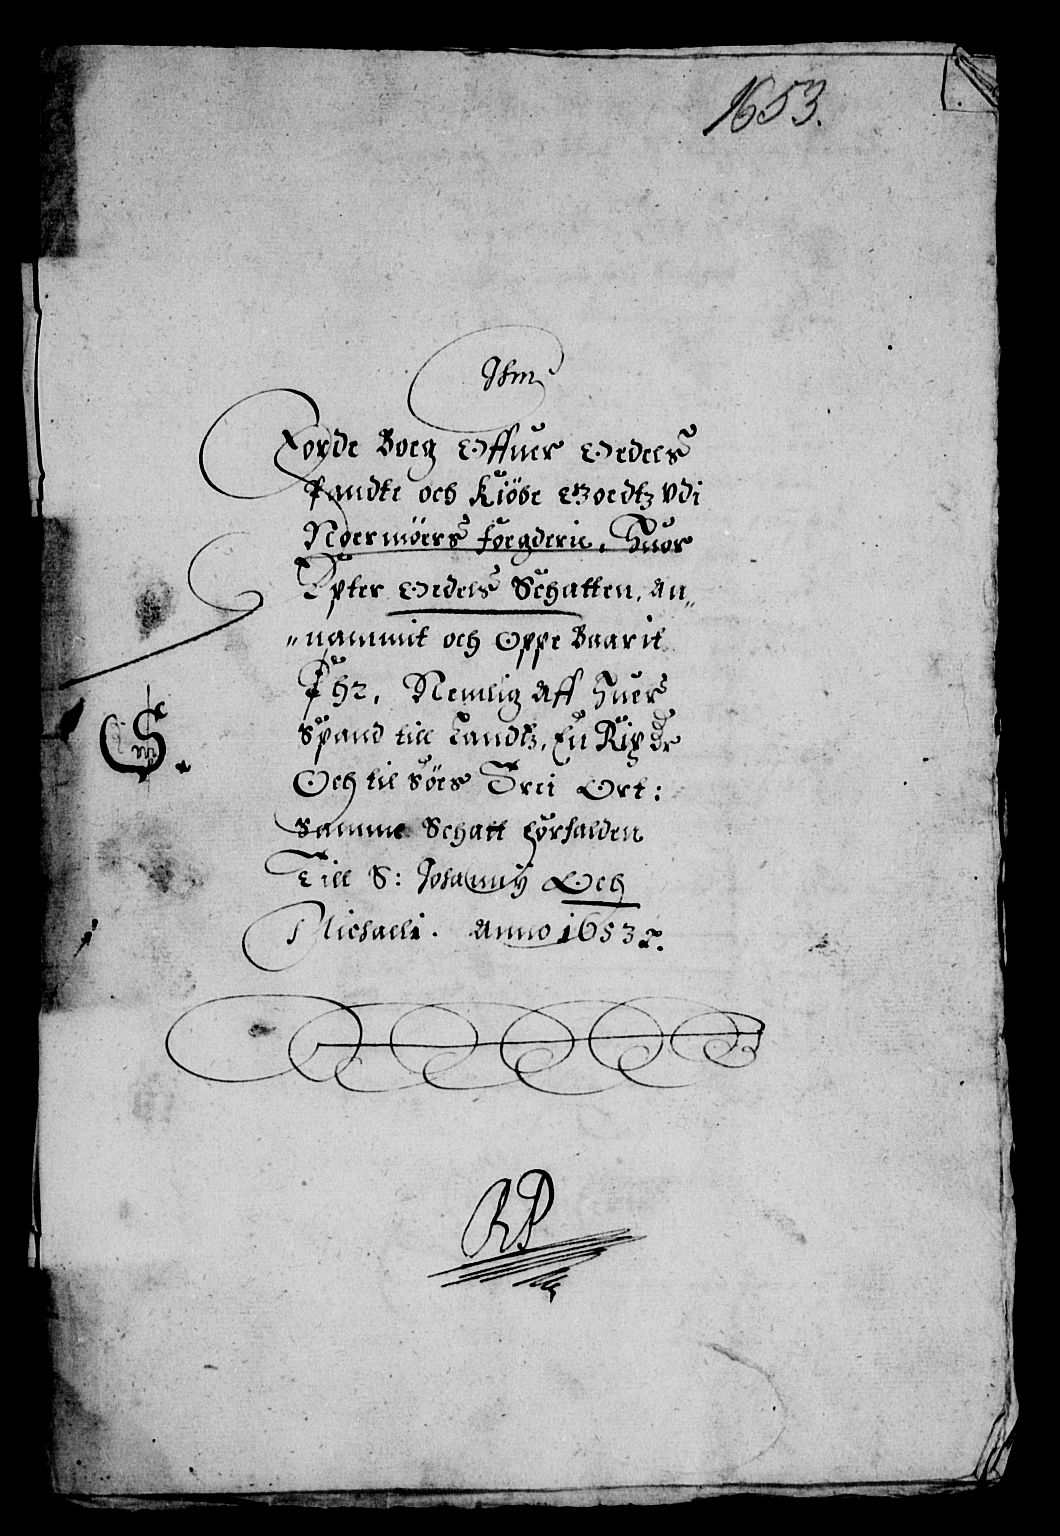 1653.
Jorde Boeg Offuer Oedels
Pandte och Kiöbe Goedtz Vdi
Noermöers foegderie, Huor
Epter Oedels Schatten, An„
„nammit och Oppe Baarit
Ehr, Nemlig Aff Huer
Spand till Landtz, En Rix Dr
Och til Söes Trei Ort:
Samme Schatt forfalden
Till S: Johannij Och
Michaeli. Anno 1653
RP